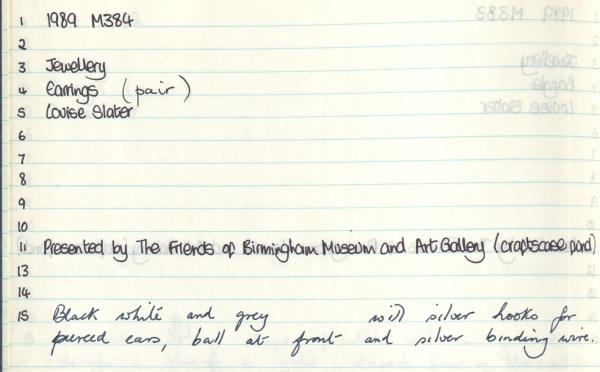 1 1989 M384
2
3 Jewellery
4 Earrings (pair)
5 Louise Slater
6
7
8
9
10
11 Presented by The Friends of Birmingham Museum and Art Gallery (craftscase fund)
13
14
15 Black white and grey with silver hooks for
pierced ears, ball at front and silver binding wire.